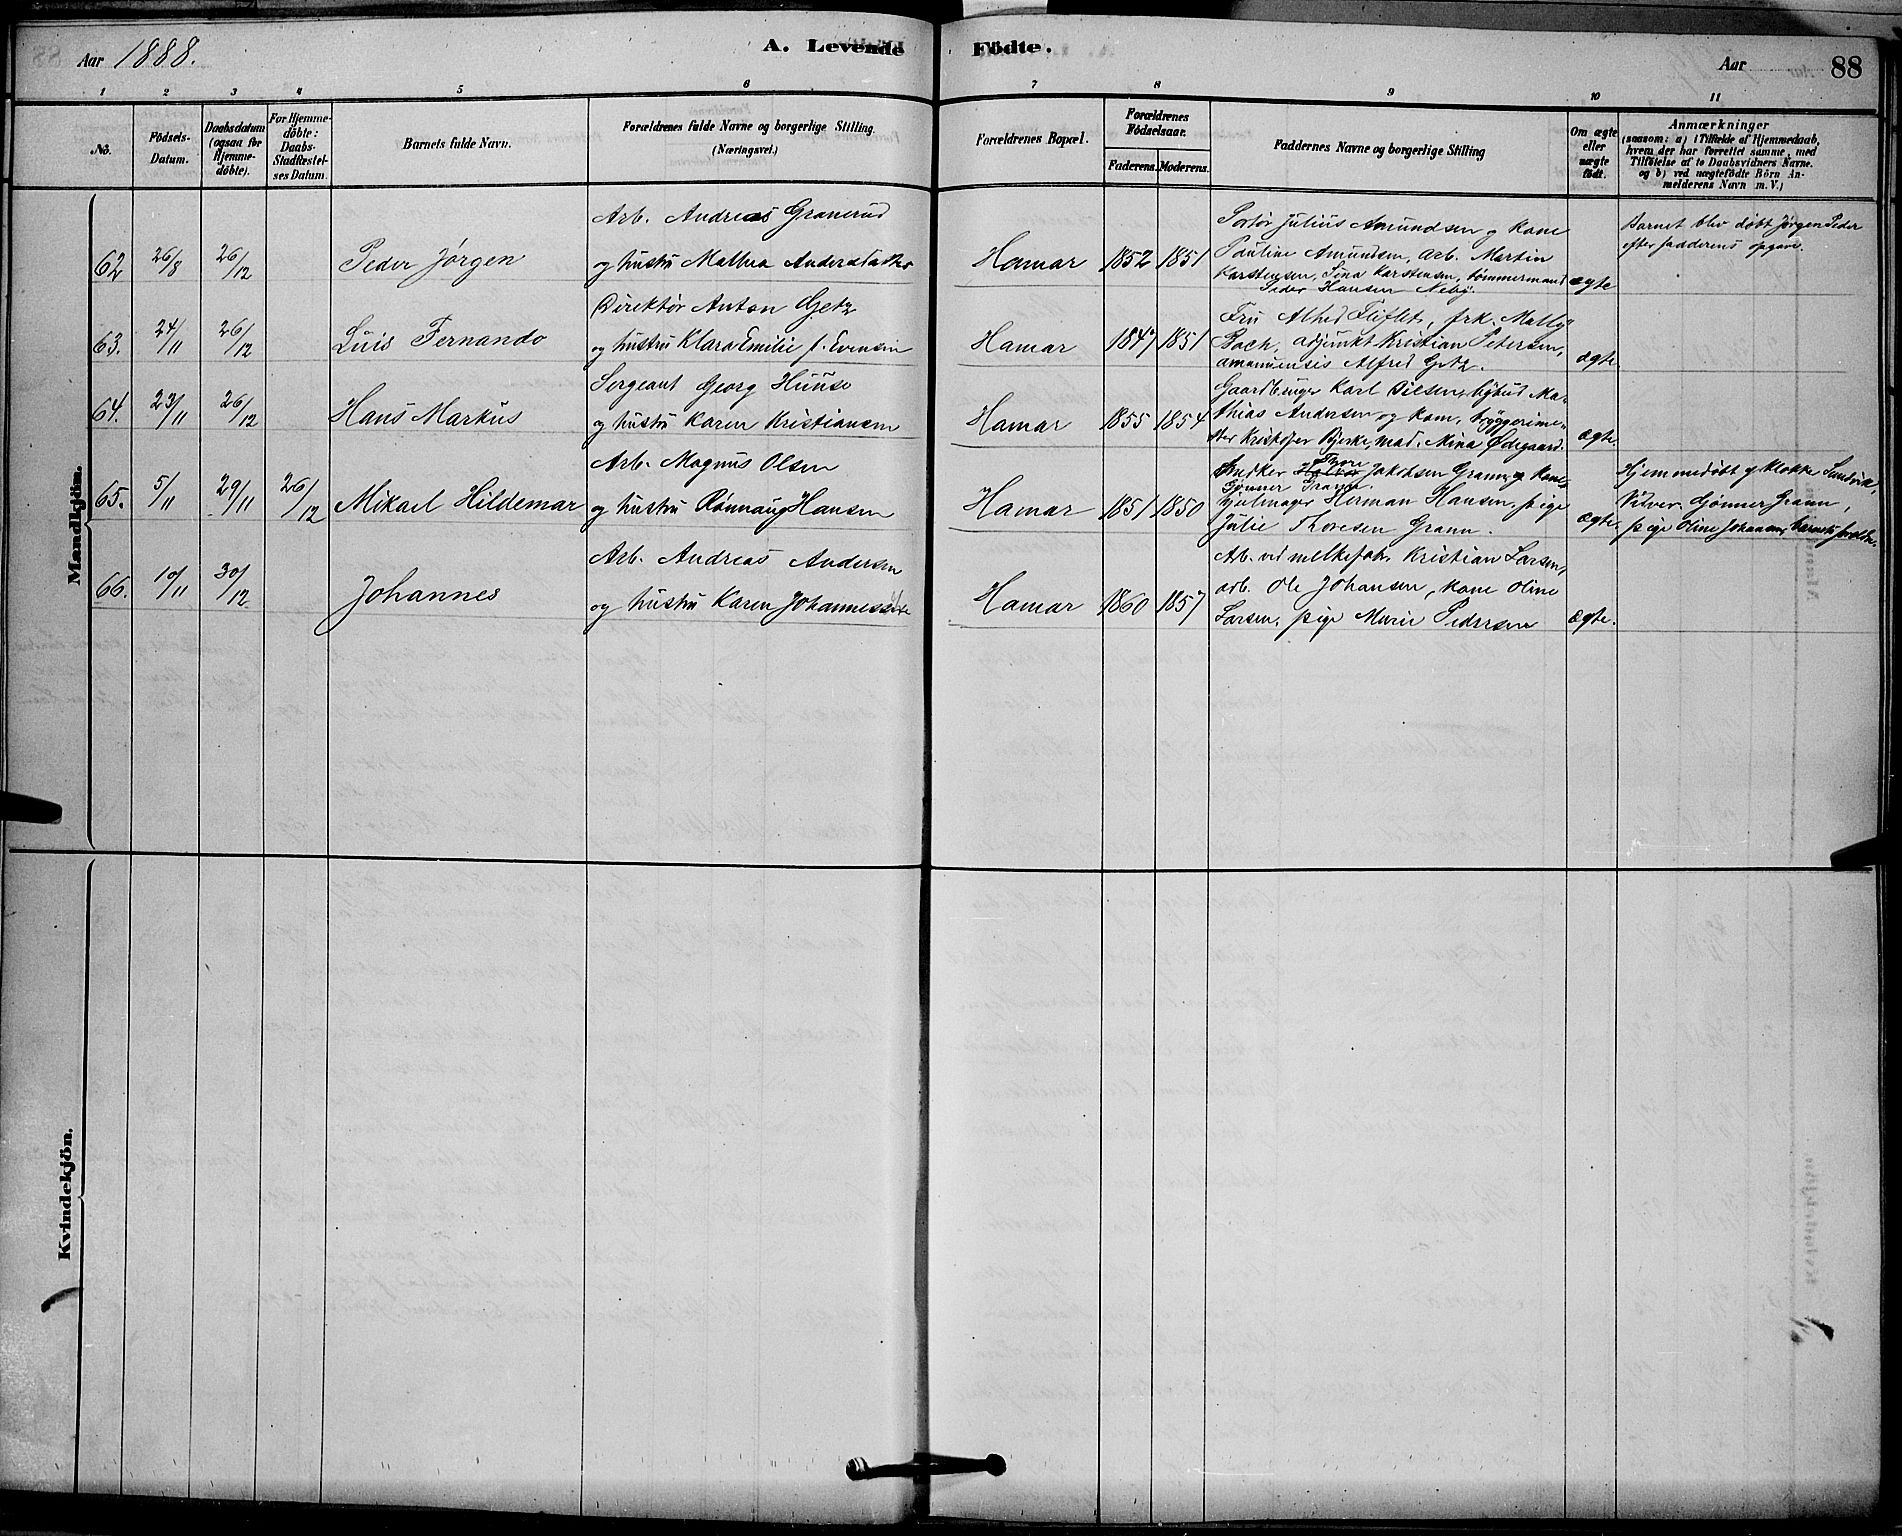 Aar 1888.
A. Levende Födte.
Aar
88
1 2 3 4 5 6 7 8 9 10 11
No.
Födsels-
Datum.
Daabsdatum
(ogsaa for
Hjemme-
döbte).
For Hjemme-
döbte:
Daabs-
Stadfæstel-
ses Datum.
Barnets fulde Navn.
Forældrenes fulde Navne og borgerlige Stilling
(Næringsvei.)
Forældrenes Bopæl.
Forældrenes
Födselsaar.
Faderens. Moderens.
Faddernes Navne og borgerlige Stilling
Om ægte
eller
uægte
födt.
Anmærkninger
(saasom: a) i Tilfælde af Hjemmedaab,
hvem der har forrettet samme, med
Tilföielse af to Daabsvidners Navne.
og b) ved uægtefödte Börn An-
melderens Navn m. V.)
Mandkjön.
62 26/8 26/12
Peder Jørgen
Arb. Andreas Granerud
og hustru Mathea Andersdatter
Hamar 1852 1851
Portør Julius Amundsen og kone
Pauline Amundsen, arb. Martin
Karstensen, Tina Karstensen, tømmermand
Peder Hansen Neby.
ægte
Barnet blev døbt Jørgen Peder
efter fadderens opgave.
63. 24/11 26/12
Luis Fernando
Direktør Anton Getz
og hustru Klara Emilie f. Evensen
Hamar 1847 1851
Fru Alhed Fliflet, frk. Mally
Bach, adjunkt Kristian Petersen,
amanuensis Alfred Getz.
ægte.
64. 23/11 26/12
Hans Markus
Sergeant Georg Huuse
og hustru Karen Kristiansen
Hamar 1855 1854
Gaardbruger Karl Dilsen, bybud Ma-
thias Andersen og kone, bryggerime-
ster Kristofer Bjerke, mad. Mina Ødegaard.
ægte.
65. 5/11 29/11 26/12
Mikael Hildemar
Arb. Magnus Olsen
og hustru Rønnaug Hansen
Hamar 1851 1850
Snedker Thore Jakobsen Grann og kone
Gjønner Grann.
hjulmager Herman Hansen, pige
Julie Thoresen Grann.
ægte.
Hjemmedøbt af klokker Sundvik,
Vitner: Gjønner Grann,
pige Oline Johansen, barnets forældre.
66. 10/11 30/12
Johannes
Arb. Andreas Andersen
og hustru Karen Johannesdtr
Hamar 1860 1857
Arb. ved melkefabr. Kristian Larsen,
arb. Ole Johansen, kone Oline
Larsen, pige Marie Pedersen
ægte.
Kvindekjön.